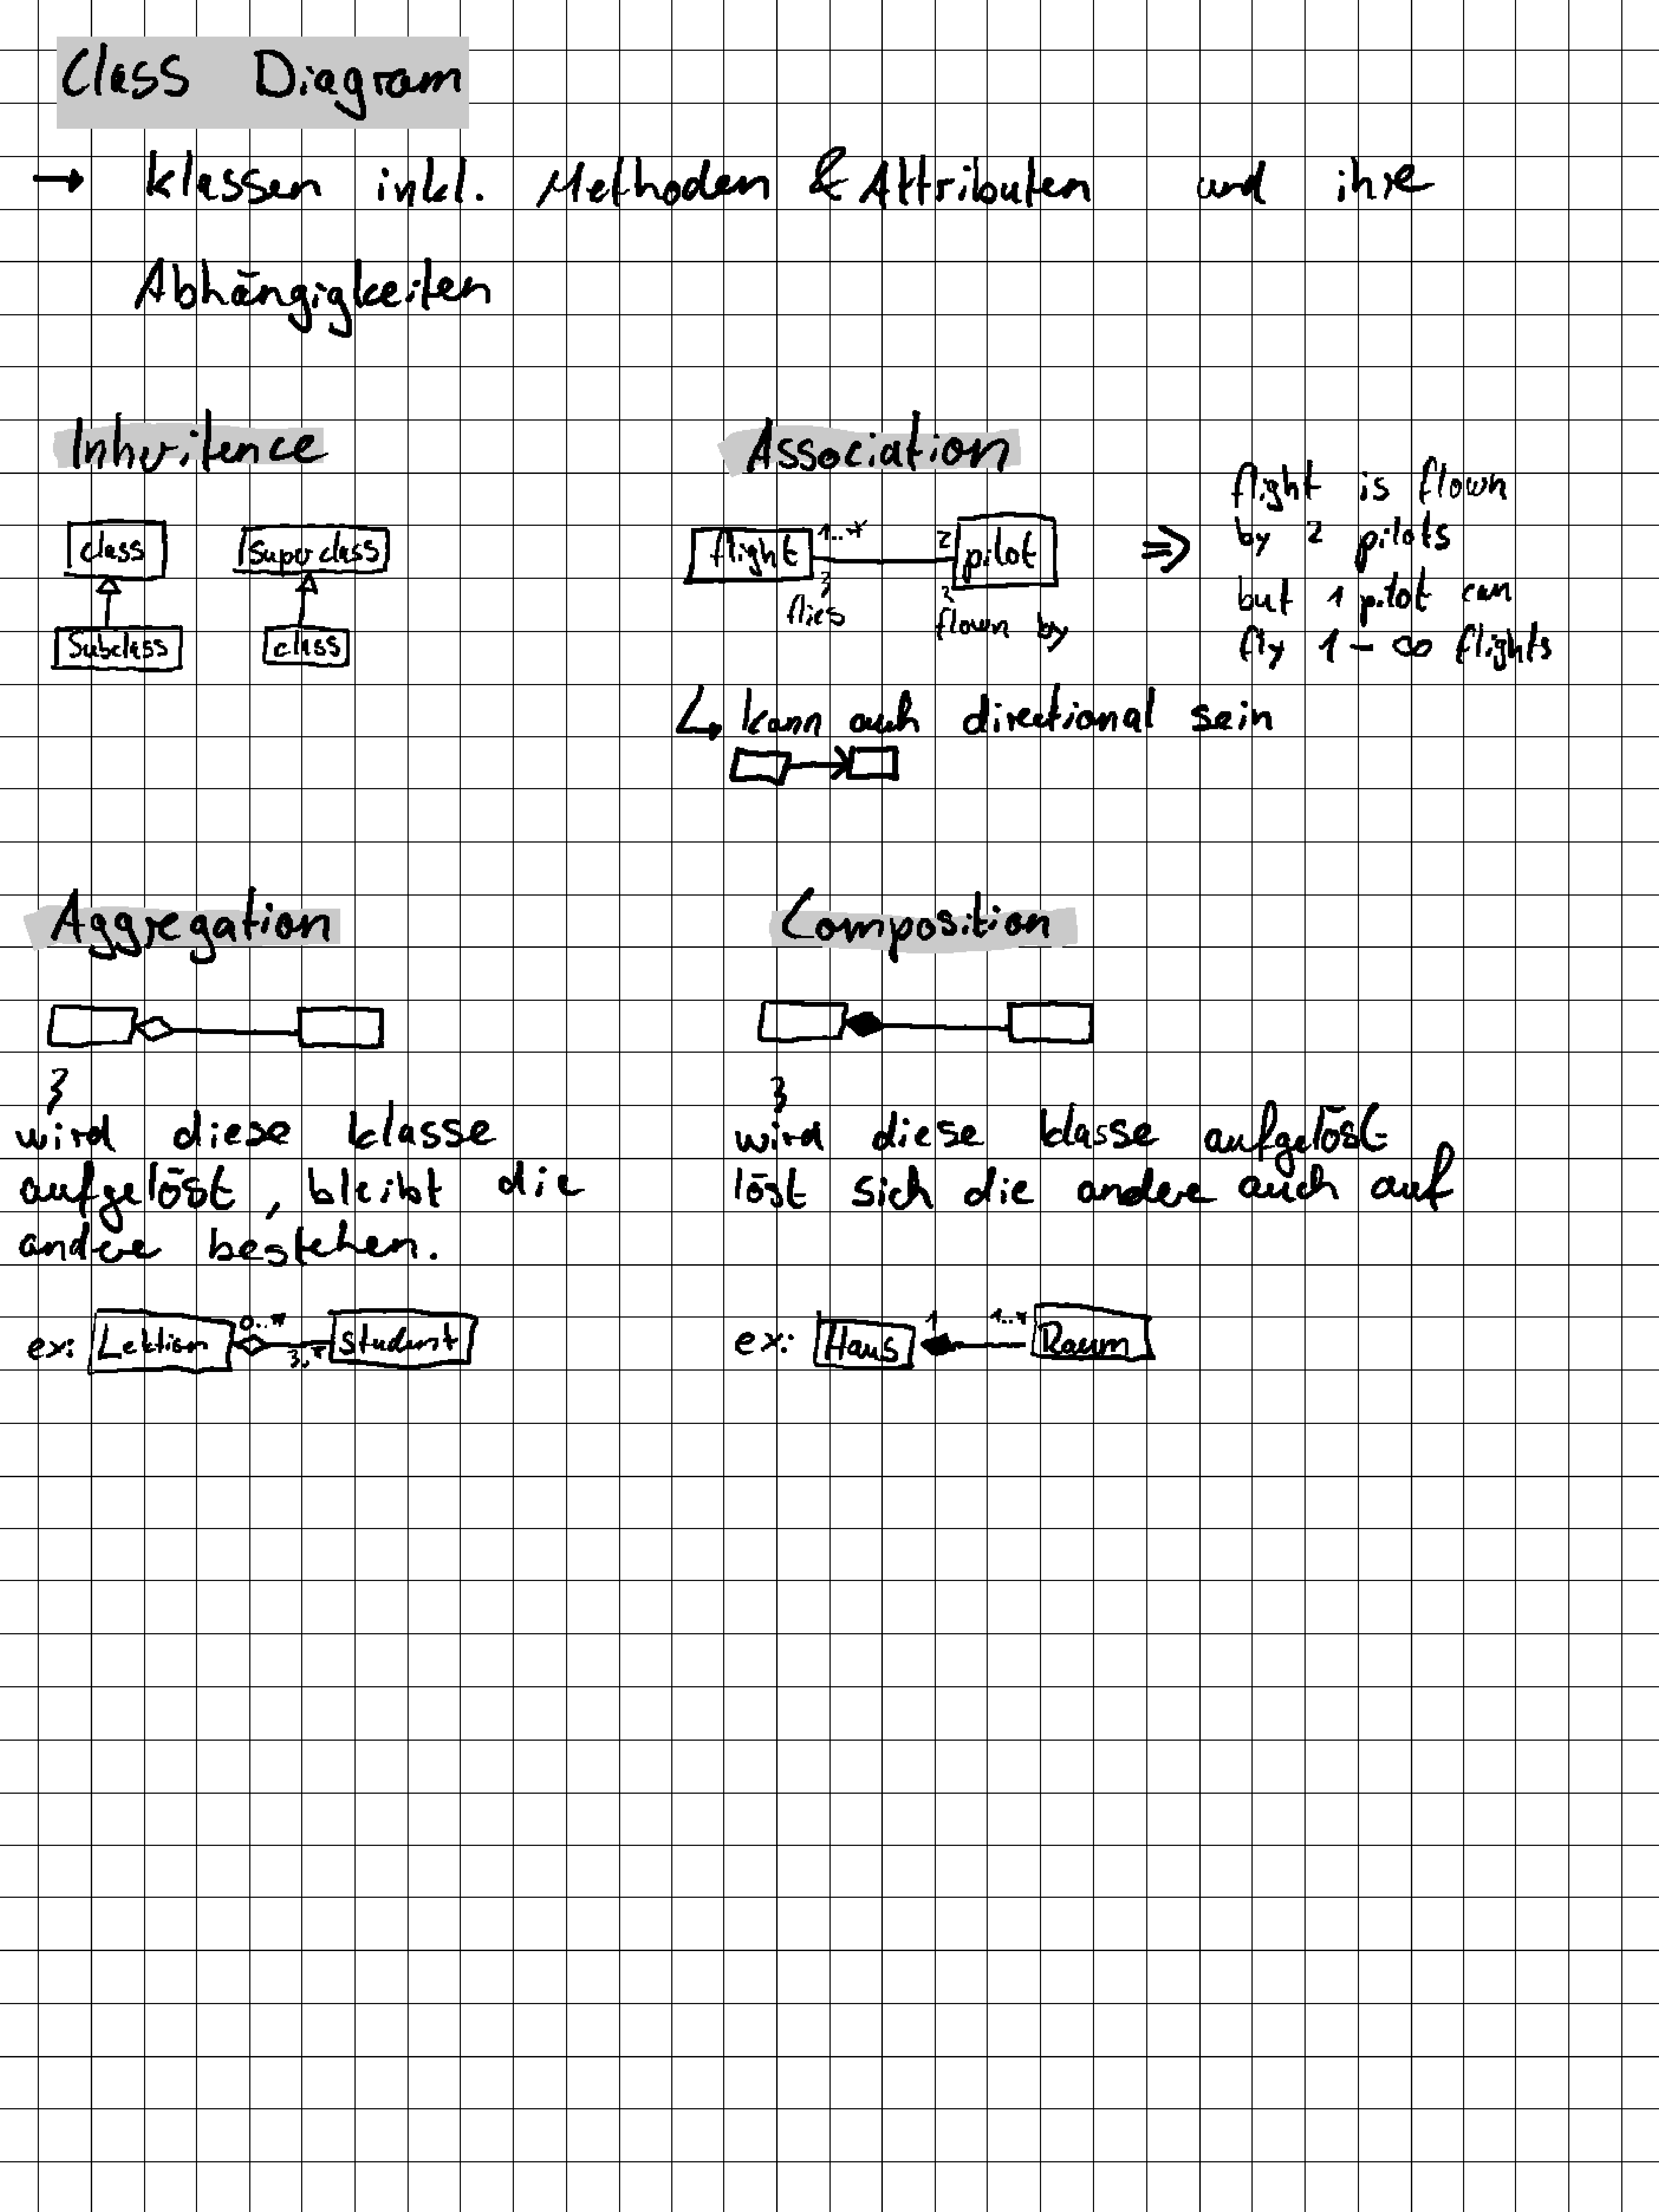 Class Diagram
→ Klassen inkl. Methoden & Attributen und ihre
Abhängigkeiten
Inheritence
class
Subclass
Superclass
class
Association
flight 1..* 2 pilot
flies flown by
⇒ flight is flown
by 2 pilots
but 1 pilot can
fly 1 - ∞ flights
↳ kann auch directional sein
Aggregation
wird diese Klasse
aufgelöst, bleibt die
andere bestehen.
ex: Lektion 0..* 3..* Student
Composition
wird diese Klasse aufgelöst
löst sich die andere auch auf
ex: Haus 1 1..* Raum